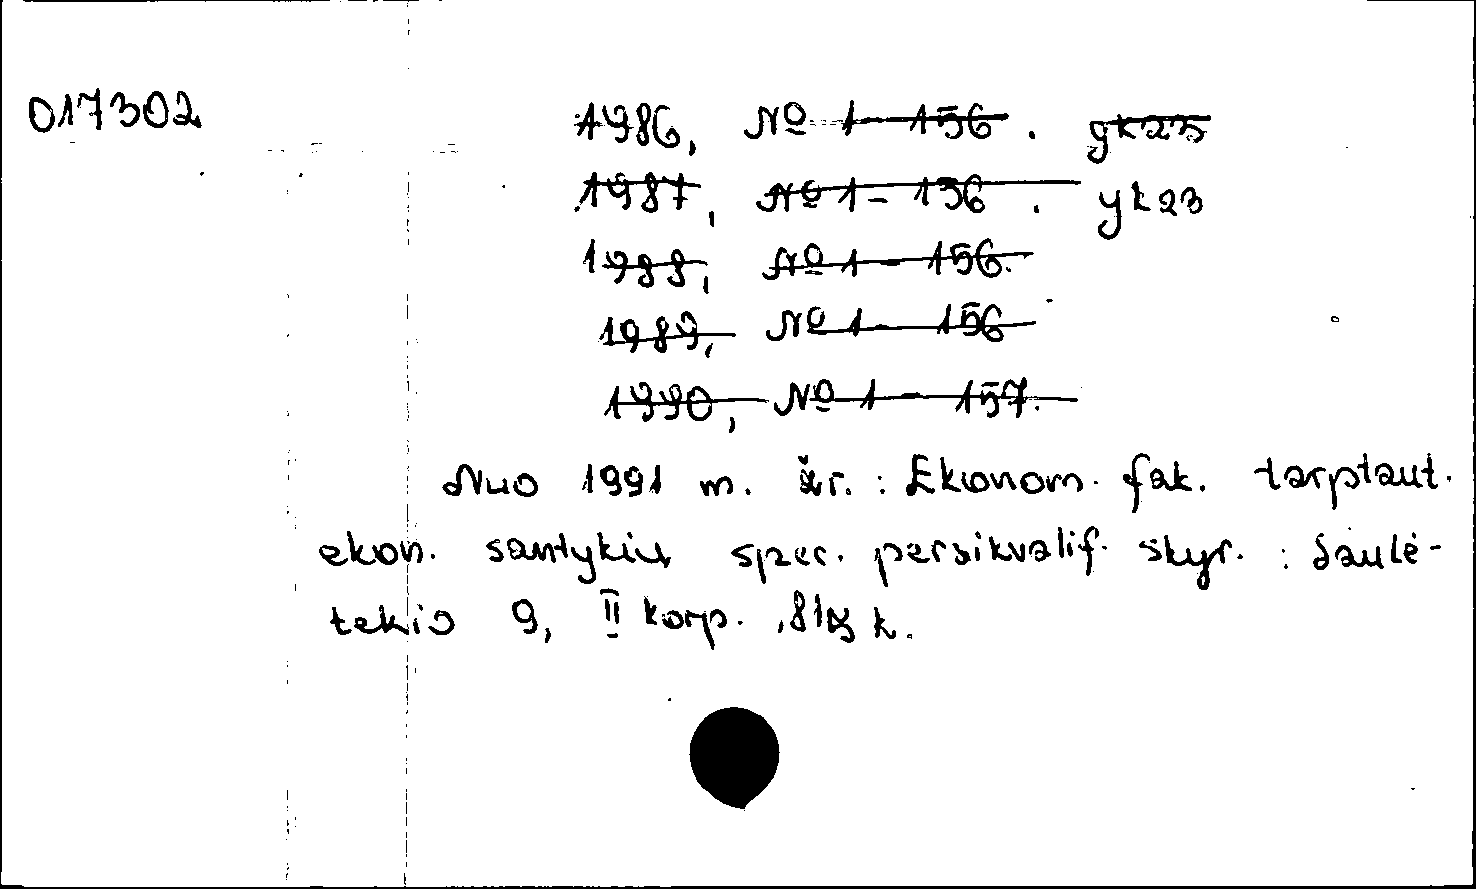 017302 1986, № 1-156. yk23
1987, № 1-156. yk23
1988, № 1-156.
1989, № 1-156
1990, № 1-157.
Nuo 1991 m. žr.: Ekonom. fak. tarptaut.
ekon. santykių spec. persikvalif. skyr. : Saulė-
tekio 9, II korp. , k.